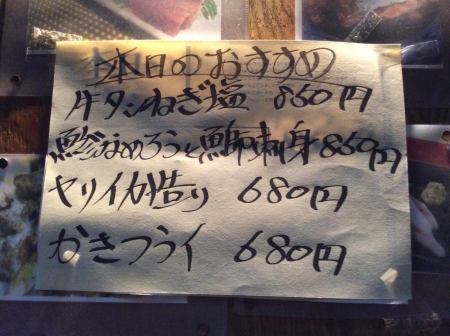 本日のおすすめ
牛タンねぎ塩 860円
鯵なめろうと鰤刺身 860円
ヤリイカ造り 680円
かきフライ 680円